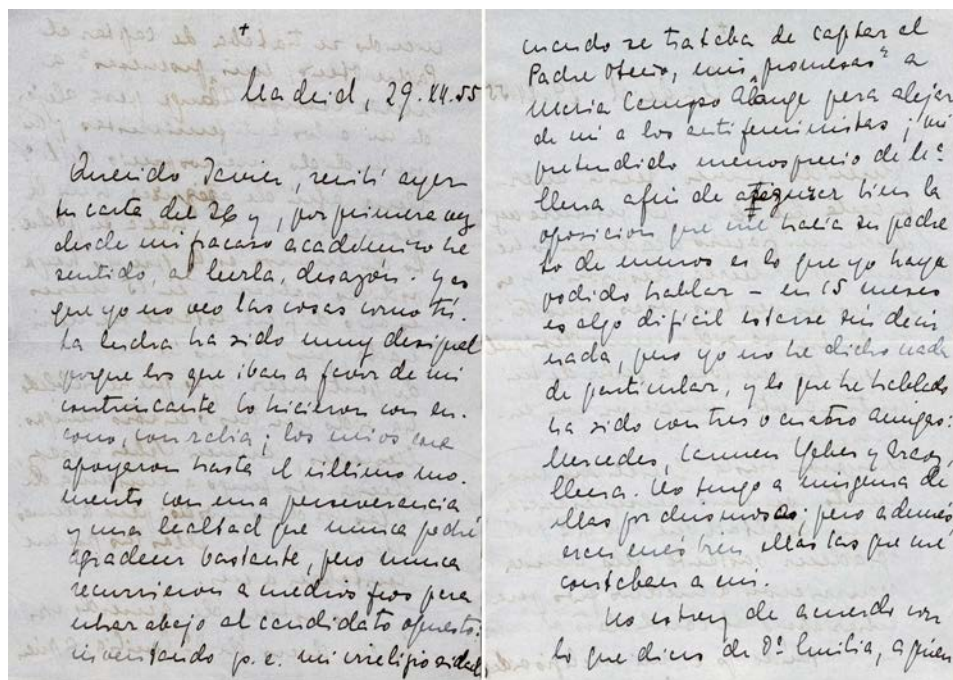 +
Madrid, 29. XII. 55
Querido Javier, recibí ayer
tu carta del 26 y, por primera vez
desde mi fracaso académico he
sentido, al leerla, desazón. Y es
que yo no veo las cosas como tú.
La lucha ha sido muy desigual
porque los que iban a favor de mi
contrincante lo hicieron con en-
cono, con rabia; los míos me
apoyaron hasta el último mo-
mento con una perseverancia
y una lealtad que nunca podré
agradecer bastante, pero nunca
recurrieron a medios feos para
echar abajo al candidato opuesto:
inventando p. e. mi irreligiosidad
cuando se trataba de captar el
Padre Otero, mis "promesas" a
María Campo Alange para alejar
de mi a los antifeministas; mi
pretendido menosprecio de la
llera a fin de asegurar bien la
oposición que me hacía su padre
Lo de menos es lo que yo haya
podido hablar – en 15 meses
es algo difícil estarse sin decir
nada, pero yo no he dicho nada
de particular, y lo que he hablado
ha sido con tres o cuatro amigas:
Mercedes, Carmen Yebes y
llera. No tengo a ninguna de
ellas por chismosa; pero además
eran más bien ellas las que me
contaban a mi.
No estoy de acuerdo con
lo que dices de Dª Emilia, a quien